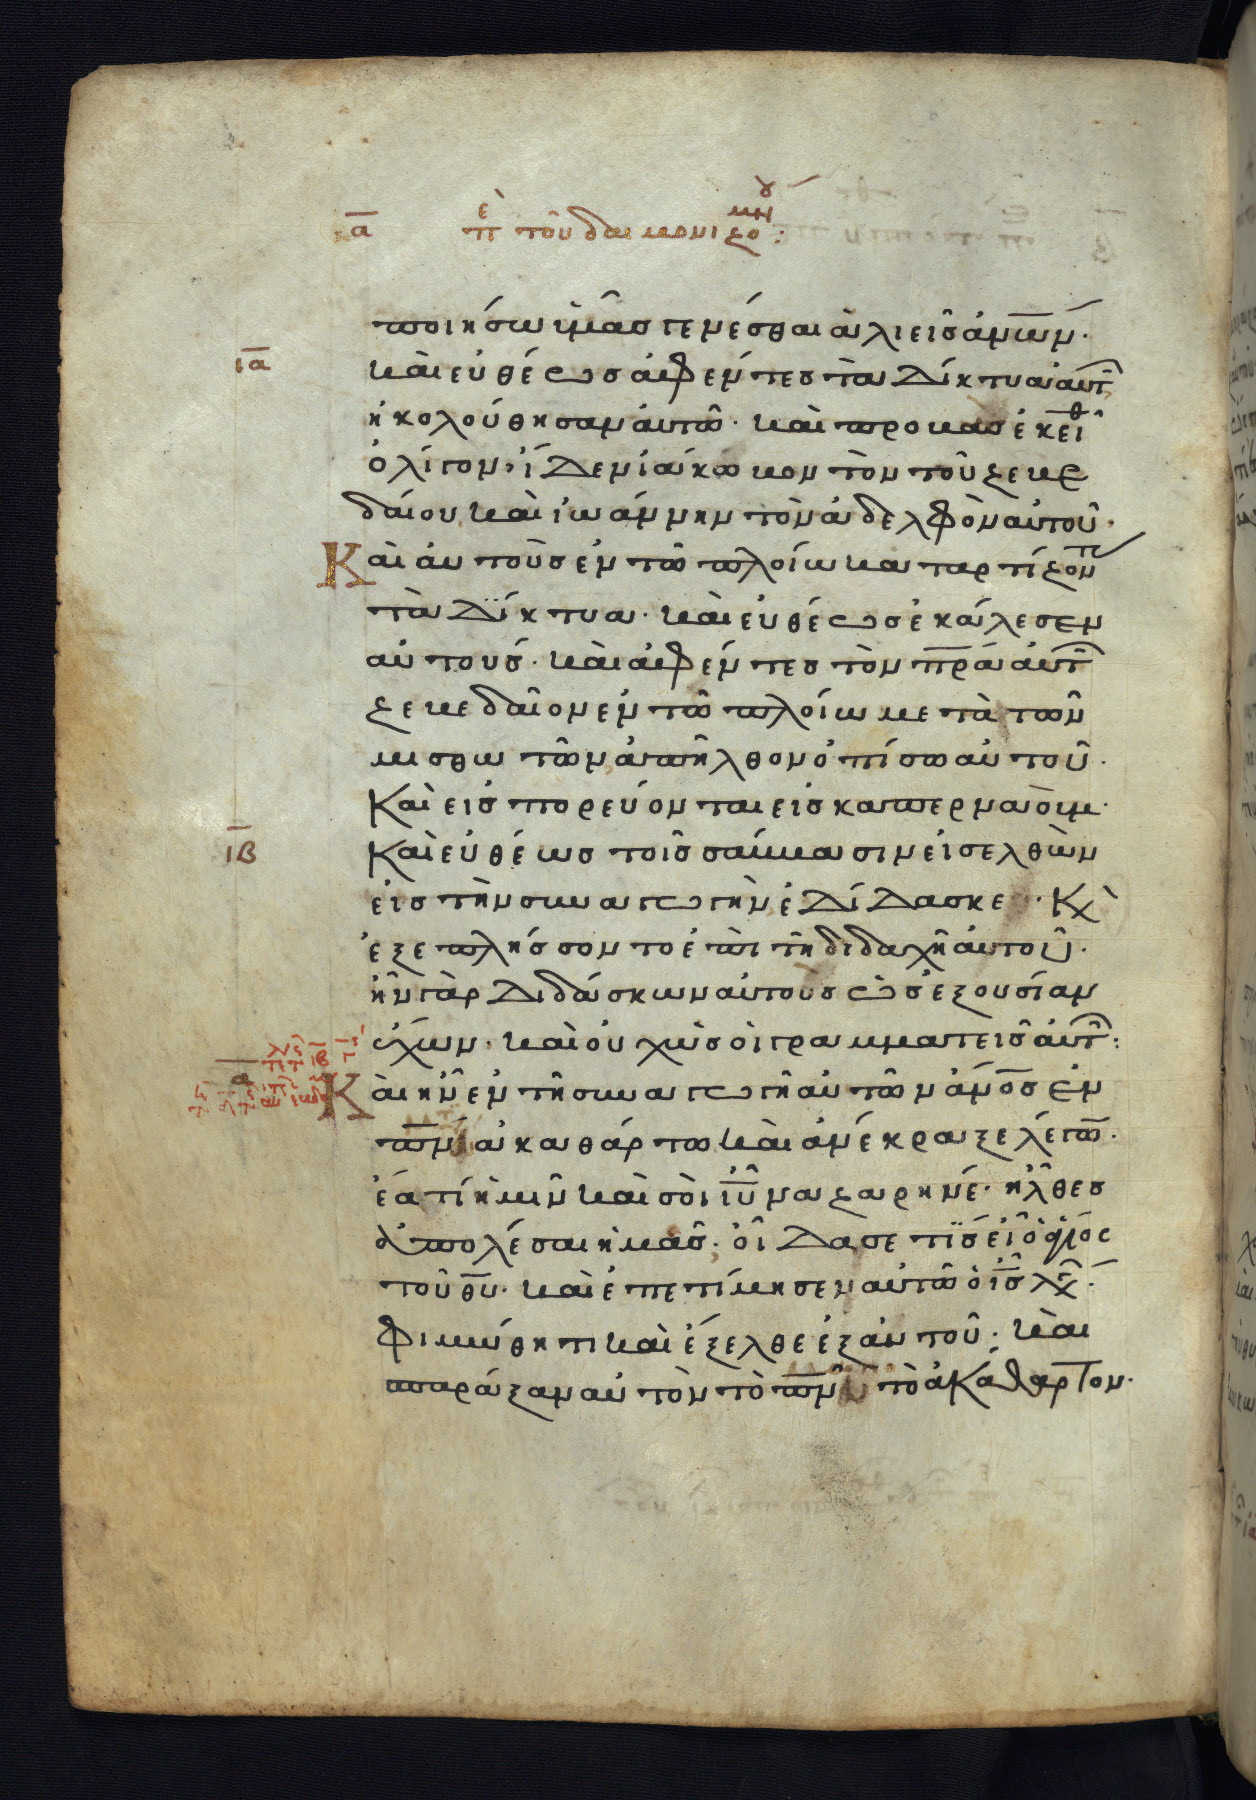 α̅ πὲ τοῦ δαιμονιζομήνου:
ποιήσω ὑμᾶς γενέσθαι ἁλιεῖς ἀν̅ων·
ια̅ καὶ εὐθέως ἀφέντες τὰ δίκτυα αὐτῶ
ἠκολούθησαν αὐτῶ· καὶ προβὰς ἐκεῖθ
ὀλίγον, εἶδεν ἰάκωβον τὸν τοῦ ζεβε
δαίου καὶ ἰωάννην τὸν ἀδελφὸν αὐτοῦ·
Καὶ αὐτοὺς ἐν τῶ πλοίω καταρτίζοντ
τὰ δίκτυα· καὶ εὐθέως ἐκάλεσεν
αὐτούς· καὶ ἀφέντες τὸν π̅ρα αὐτῶ
ζεβεδαῖον ἐν τῶ πλοίω μετὰ τῶν
μισθωτῶν ἀπῆλθον ὀπίσω αὐτοῦ·
Καὶ εἰσπορεύονται εἰς καπερναούμ·
ιβ̅ Καὶ εὐθέως τοῖς σάββασιν εἰσελθὼν
εἰς τὴν συναγωγὴν ἐδίδασκε· Κ̀
ἐξεπλήσσοντο ἐπὶ τῆ διδαχῆ αὐτοῦ·
ἦν γὰρ διδάσκων αὐτοὺς ὡς ἐξουσίαν
ἔχων· καὶ οὐχ ὡς οἱ γραμματεῖς αὐτῶ:
α̅ Καὶ ἦν ἐν τῆ συναγωγῆ αὐτῶν ἄν̅ος ἐν
πν̅ι ἀκαθάρτω καὶ ἀνέκραξε λέγω̅·
ἔα τί ἡμῖν καὶ σοὶ ιῦ̅ ναζαρηνέ· ἦλθες
ἀπολέσαι ἡμᾶς· οἶδα σε τίς εἶ ὁ ἅγιος
τοῦ θυ̅· καὶ ἐπετίμησεν αὐτῶ ὁ ι̅ς λγ̅·
φιμώθητι καὶ ἔξελθε ἐξ αὐτοῦ· καὶ
σπαράξαν αὐτὸν τὸ πν̅α τὸ ἀκάθαρτον·